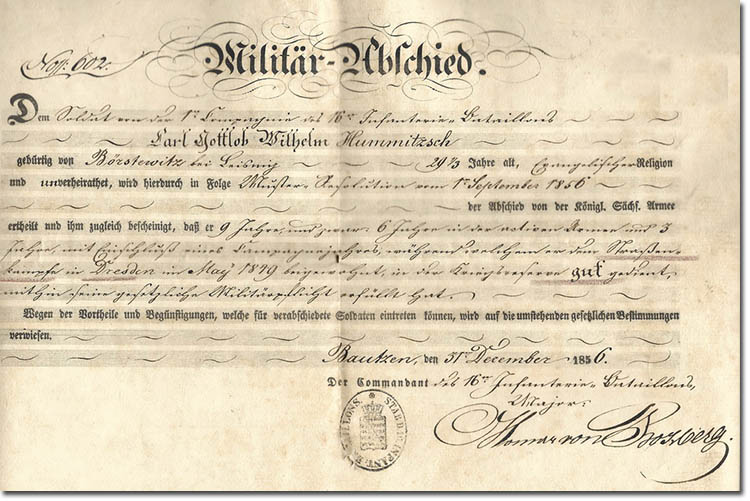 No. 602.
Militär-Abschied.
Dem Soldat von der 1n Compagnie des 16n Infanterie-Bataillons
Carl Gottlob Wilhelm Hummitzsch
gebürtig von Börstewitz bei Leisnig 29⅔ Jahre alt, Evangelischer Religion
und unverheirathet, wird hierdurch in Folge Muster-Resolution vom 1n September 1856
der Abschied von der Königl. Sächs. Armee
ertheilt und ihm zugleich bescheinigt, daß er 9 Jahre, und zwar: 6 Jahre in der activen Armee und 3
Jahre, mit Einschluß eines Campagnejahres, während welchem er dem Straßen-
kampfe in Dresden im May 1849 beigewohnt, in der Kriegsreserve gut gedient,
mithin seine gesetzliche Militärpflicht erfüllt hat.
Wegen der Vortheile und Begünstigungen, welche für verabschiedete Soldaten eintreten können, wird auf die umstehenden gesetzlichen Bestimmungen
verwiesen.
Bautzen, den 31n December 1856.
Der Commandant des 16n Infanterie-Bataillons,
Major:
von